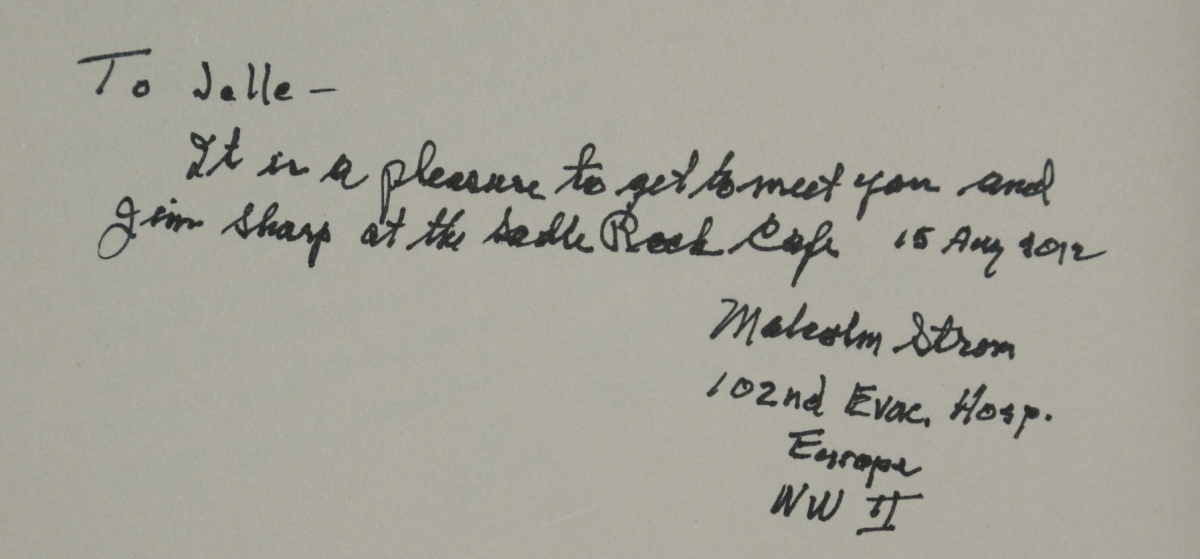 To Jelle –
It is a pleasure to get to meet you and
Jim Sharp at the Sadle Rock Cafe 15 Aug 2012
Malcolm Strom
102nd Evac. Hosp.
Europe
WW II